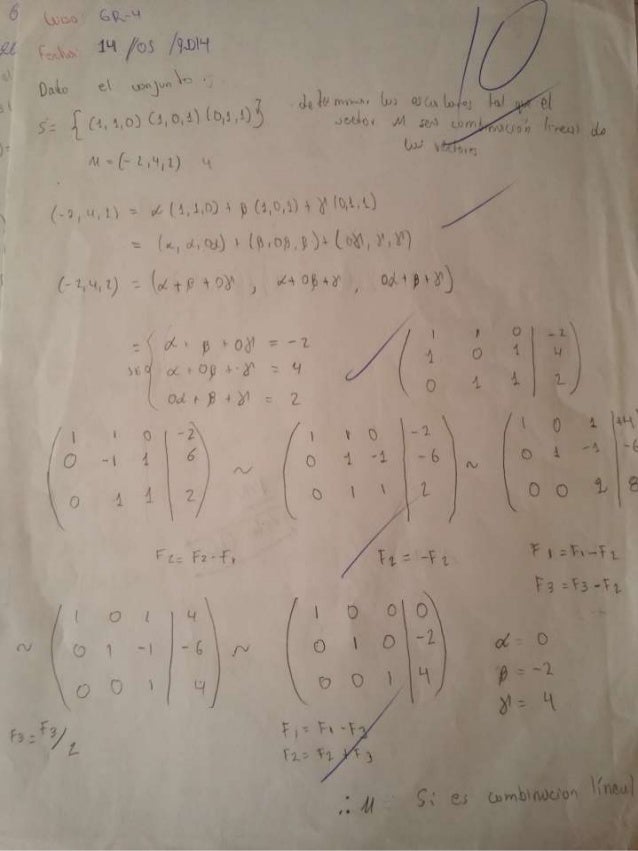 6 GR-4 10
Fecha: 14 /05 /2014
Dado el conjunto :
S = { (1,1,0) (1,0,1) (0,1,1) } determinar los escalares tal que el
vector u sea combinación lineal de
los vectores
u = (-2,4,2) 4
(-2,4,2) = α (1,1,0) + β (1,0,1) + γ (0,1,1)
= (α, α, 0α) + (β, 0β, β) + (0γ, γ, γ)
(-2,4,2) = (α + β + 0γ , α + 0β + γ , 0α + β + γ)
= { α + β + 0γ = -2
SEO { α + 0β + γ = 4
{ 0α + β + γ = 2
( 1 1 0 | -2 )
( 1 0 1 | 4 )
( 0 1 1 | 2 )
( 1 1 0 | -2 ) ( 1 1 0 | -2 ) ( 1 0 1 | +4
( 0 -1 1 | 6 ) ~ ( 0 1 -1 | -6 ) ~ ( 0 1 -1 | -6
( 0 1 1 | 2 ) ( 0 1 1 | 2 ) ( 0 0 2 | 8
F2 = F2 - F1 F2 = -F2 F1 = F1 - F2
F3 = F3 - F2
( 1 0 1 | 4 ) ( 1 0 0 | 0 ) α = 0
~ ( 0 1 -1 | -6 ) ~ ( 0 1 0 | -2 ) β = -2
( 0 0 1 | 4 ) ( 0 0 1 | 4 ) γ = 4
F3 = F3/2 F1 = F1 - F3
F2 = F2 + F3
∴ u Si es combinacion lineal